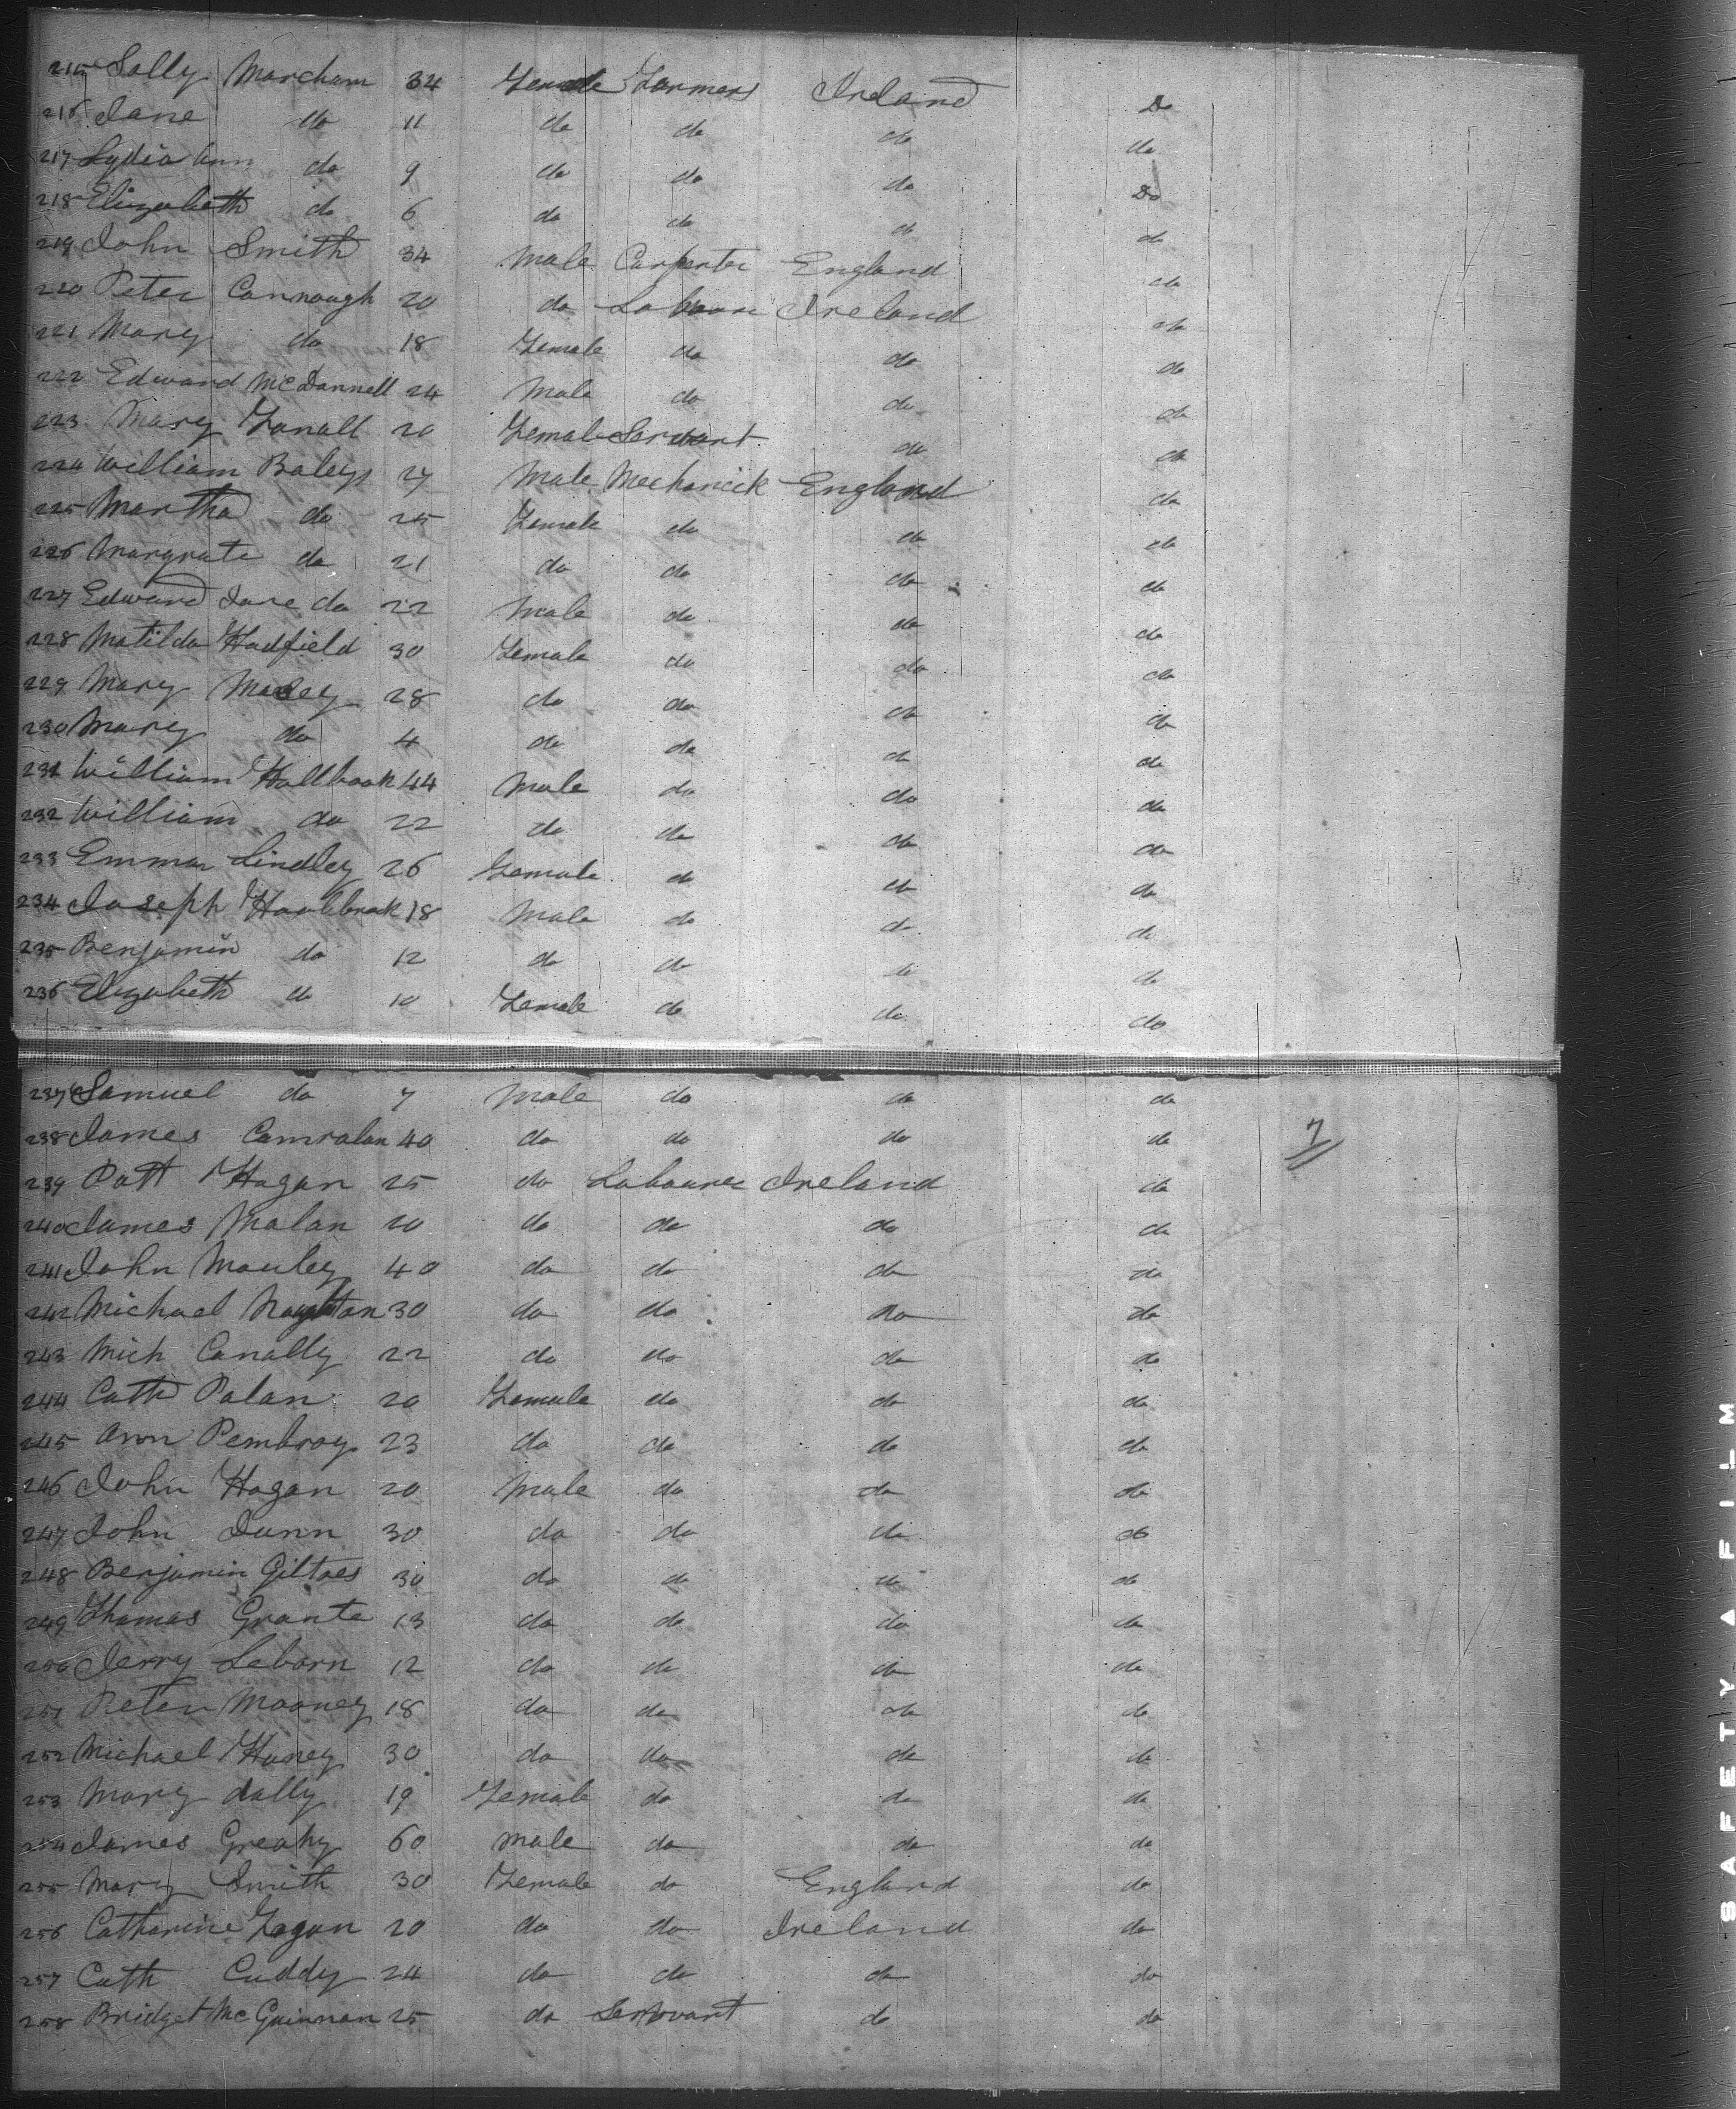 215 Sally Marcham 34 Female Farmers Ireland Do
216 Jane do 11 do do do do
217 Lydia Ann do 9 do do do Do
218 Elizabeth do 6 do do do do
219 John Smith 34 Male Carpenter England do
220 Peter Connough 20 do Labourer Ireland do
221 Mary do 18 Female do do do
222 Edward McDannell 24 Male do do do
223 Mary Fanall 20 Female Servant do do
224 William Baleys 27 Male Mechanick England do
225 Martha do 25 Female do do do
226 Margrate do 21 do do do do
227 Edward Jane do 22 Male do do do
228 Matilda Hadfield 30 Female do do do
229 Mary Macey 28 do do do do
230 Mary do 4 do do do do
231 William Hallbook 44 Male do do do
232 William do 22 do do do do
233 Emma Lindley 26 Female do do do
234 Joseph Hoolbrook 18 Male do do do
235 Benjamin do 12 do do do do
236 Elizabeth do 10 Female do do do
237 Samuel do 7 Male do do do
238 James Camralan 40 do do do do 7
239 Patt Hagan 25 do Labourer Ireland do
240 James Malan 20 do do do do
241 John Mauley 40 do do do do
242 Michael 30 do do do do
243 Mich Canally 22 do do do do
244 Cath Palan 20 Female do do do
245 Ann Pembroy 23 do do do do
246 John Hagan 20 Male do do do
247 John Dunn 30 do do do do
248 Benjamin Giltoes 30 do do do do
249 Thomas Grante 13 do do do do
250 Jerry Leborn 12 do do do do
251 Peter Mooney 18 do do do do
252 Michael Huney 30 do do do do
253 Mary dally 19 Female do do do
254 James Greahy 60 male do do do
255 Mary Smith 30 Female do England do
256 Catharine Fagan 20 do do Ireland do
257 Cath Cuddy 24 do do do do
258 Bridget McGuinnan 25 do Servant do do
SAFETY A FILM